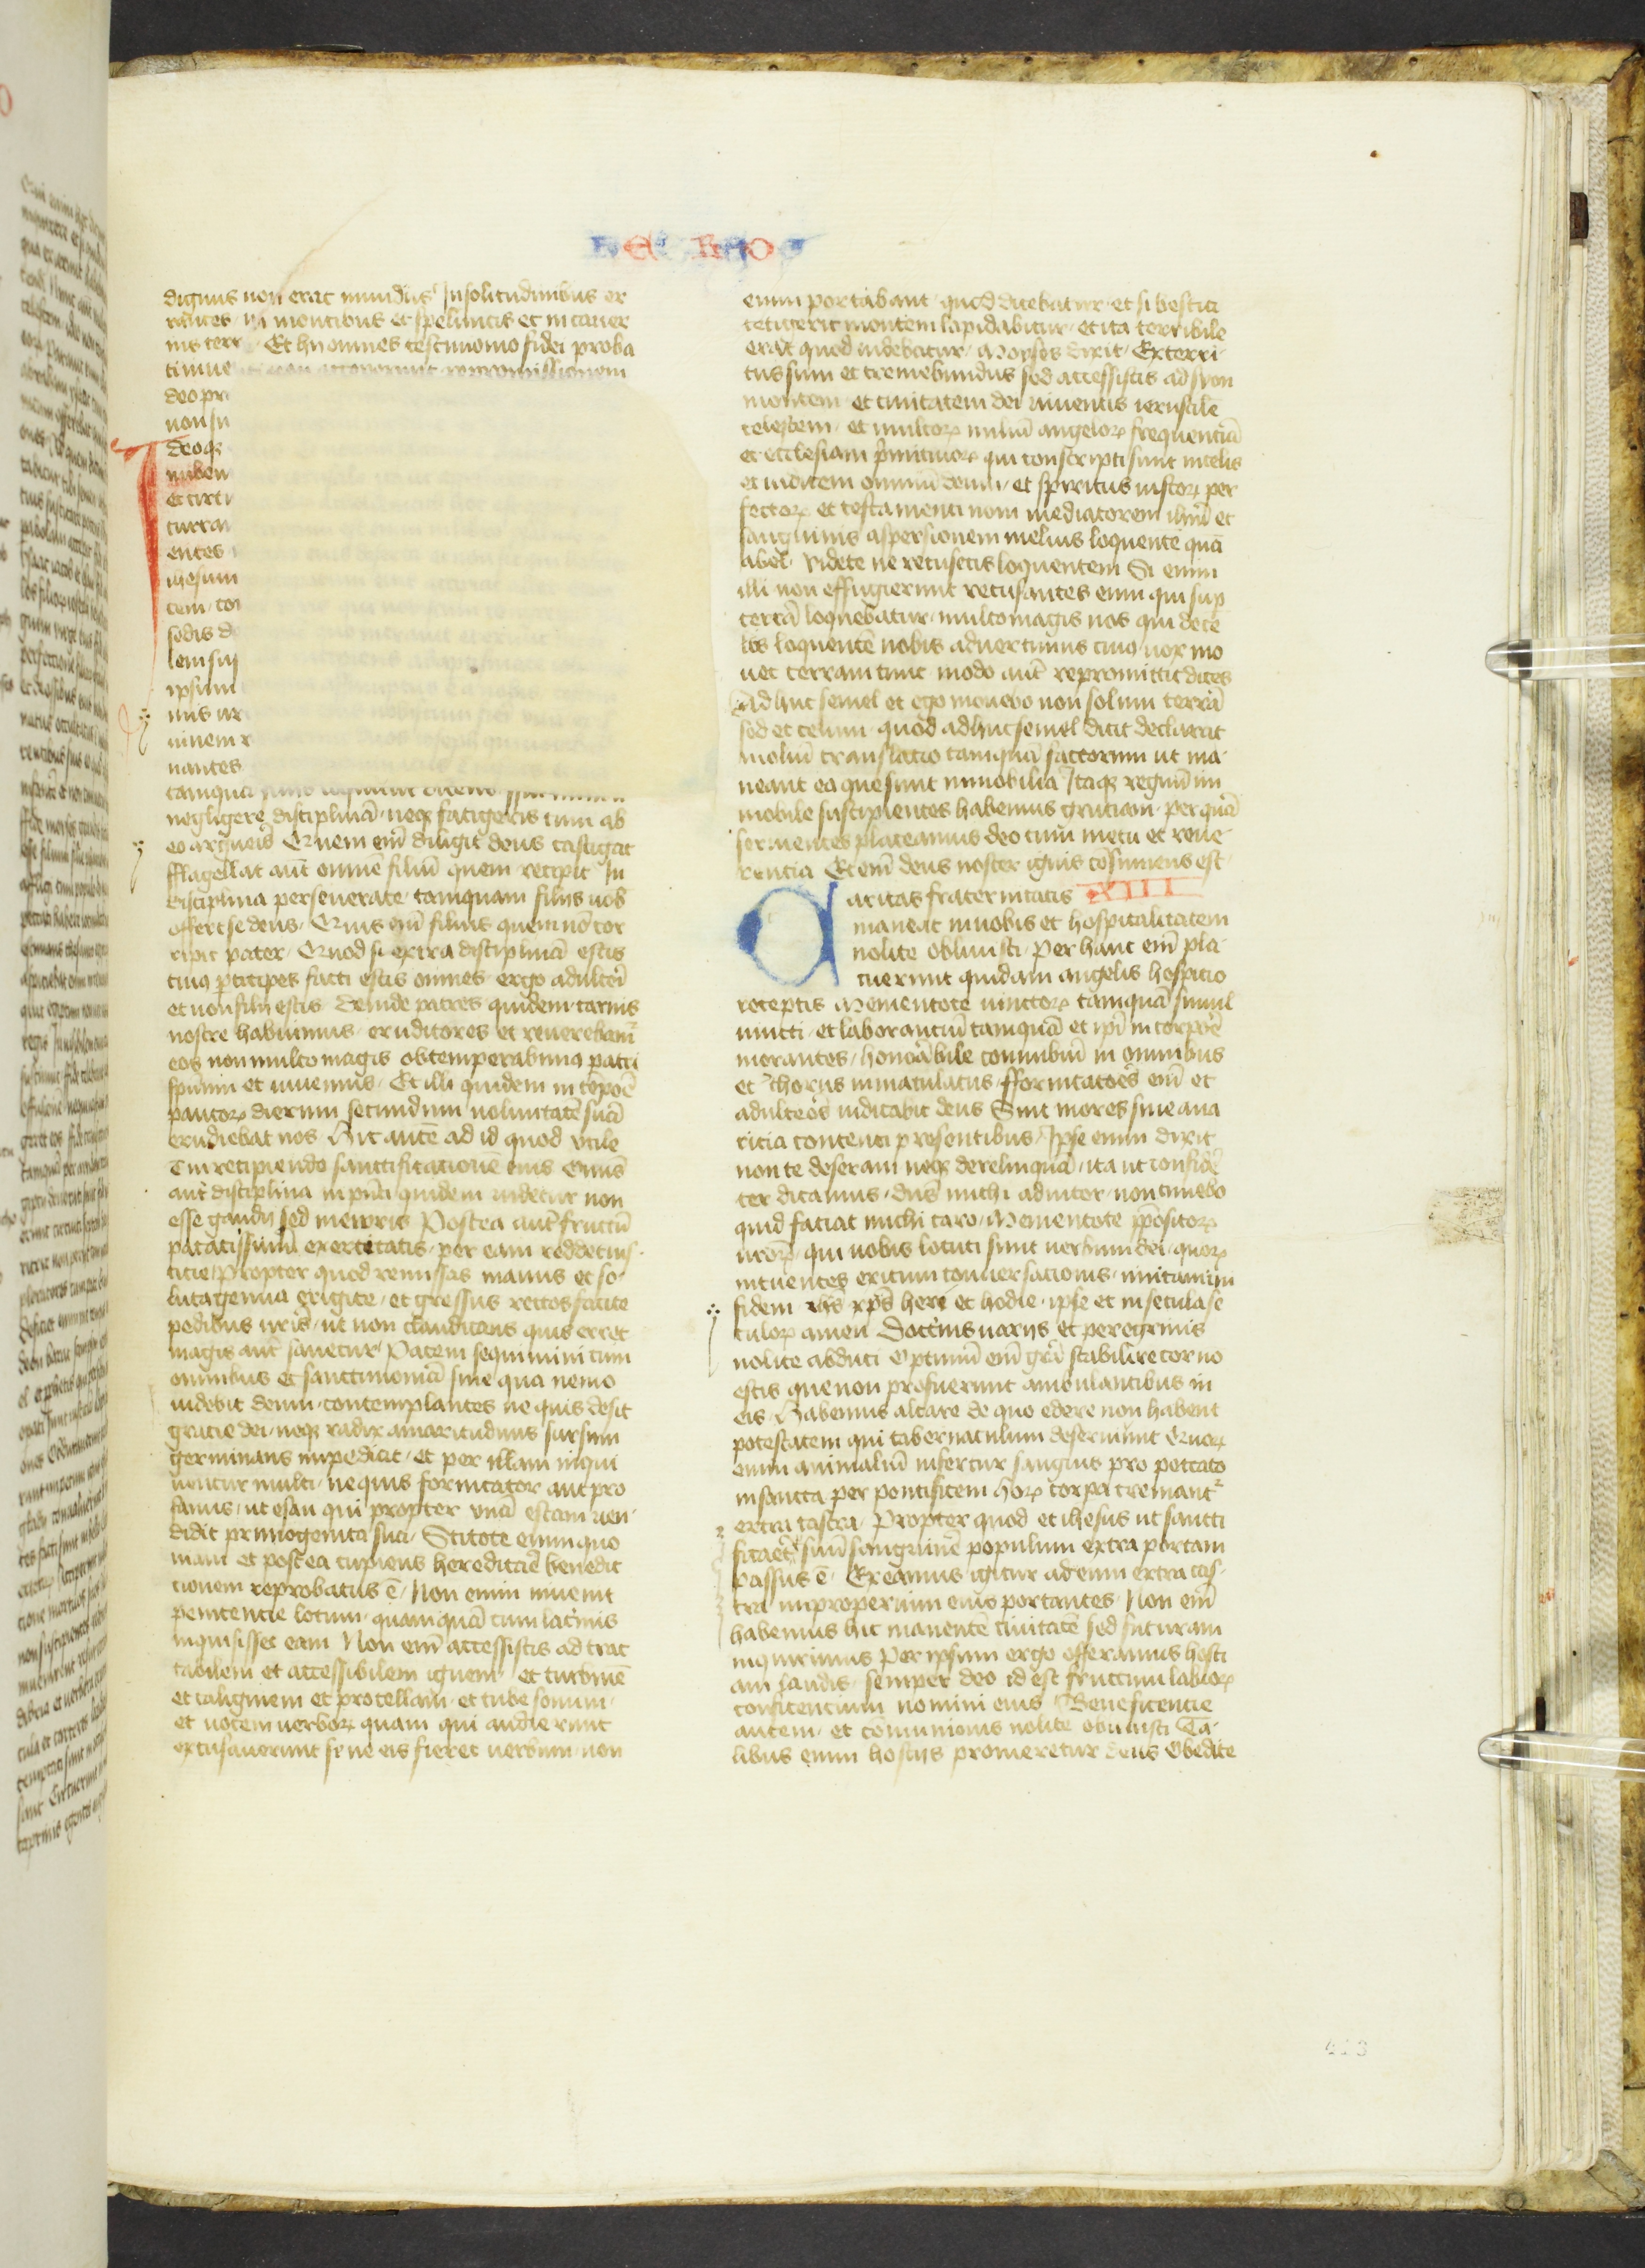 HEBREOS
dignus non erat mundus Jn solitudinibus er
rantes in montibus et speluncis et in cauer
nis terr Et hij omnes testimonio fidei proba
ti inue non acceperunt repromissionem
deo pr
non su
deoqȝ
nuben
et circu
curram
entes
ihesum
cem con
sedis d
lem sui
ipsum
mis ur
uinem r
nantes
tamqua
negligere disciplinā neqȝ fatigeris cum ab
eo argueris Quem em̄ diligit deus castigat
fflagellat aut̄ omnē filiū quem recipit Jn
disciplina perseuerate tamquam filijs uob
offert se deus Quis em̄ filius quem nō cor
ripit pater Quod si extra disciplinā estis
cuiꝰ p̄ticipes facti estis omnes ergo adulteri
et non filij estis Deinde patres quidem carnis
nostre habuimus eruditores et reuerebam̄
eos non multo magis obtemperabimꝰ patri
spūum et uiuemus Et illi quidem in tempoē
paucoꝝ dierum secundum uoluntatē suā
erudiebat nos Hic autē ad id quod vtile
ē in recipiendo sanctificationē eius Omīs
aut̄ disciplina in pn̄ti quidem uidetur non
esse gaudij sed meroris Postea aut̄ fructū
pacatissimū exercitatis per eam reddet ius
ticie Propter quod remissas manus et so
luta genua erigite et gressus rectos facite
pedibus ur̄is ut non claudicans quis erret
magis aut̄ sanetur Pacem sequimini cum
omnibus et sanctimoniā sine qua nemo
uidebit deum contemplantes ne quis desit
gracie dei neqȝ radix amaritudinis sursum
germinans impediat et per illam inqui
nentur multi ne quis fornicator aut pro
fanus ut esau qui propter vnā escam uen
didit primogenita sua Scitote enim quo
niam et postea cupiens hereditare benedic
tionem reprobatus ē Non enim inuenit
penitentie locum quamquā cum lacrīmis
inquisisset eam Non em̄ accessistis ad trac
tabilem et accessibilem ignem et turbinē
et caliginem et procellam et tube sonum
et uocem uerboꝝ quam qui audierunt
excusauerunt se ne eis fieret uerbum non
enim portabant quod dicebatur et si bestia
tetigerit montem lapidabitur et ita terribile
erat quod uidebatur Moyses dixit Exterri
tus sum et tremebundus sed accessistis ad syon
montem et ciuitatem dei uiuentis ierusalē
celestem et multoꝝ miliū angeloꝝ frequentiā
et ecclesiam primitiuoꝝ qui conscripti sunt in celis
et iudicem omniū deum et spiritus iustoꝝ per
fectoꝝ et testamenti noui mediatorem ihm̄ et
sanguinis aspersionem melius loquente quā
abel Videte ne recusetis loquentem Si enim
illi non effugierunt recusantes eum qui sup
terrā loquebatur multo magis nos qui de ce
lis loquentē nobis aduertimus cuiꝰ uox mo
uet terram tunc modo aut̄ repromittit dices
Adhuc semel et ego mouebo non solum terrā
sed et celum quod adhuc semel dicit declarat
mobiliū translatio tamquā factorum ut ma
neant ea que sunt inmobilia Itaqȝ regnū in
mobile suscipientes habemus gratiam per quā
seruientes placeamus deo cum metu et reue
rentia Et em̄ deus noster ignis cōsumens est
Caritas fraternitatis XIII
maneat in uobis et hospitalitatem
nolite obliuisci Per hanc em̄ pla
cuerunt quidam angelis hospitio
receptis Mementote uinctoꝝ tamquā simul
uincti et laborantiū tamquā et ip̄i in corpoē
morantes honorabile connubiū in omnibus
et thorus inmaculatus fforicatoēs em̄ et
adulteōs iudicabit deus Sint mores sine aua
ricia contenti presentibus Ipse enim dixit
non te deseram neqȝ derelinquā ita ut confidē
ter dicamus dn̄s michi adiutor non timebo
quid faciat michi caro Mementote p̄positoꝝ
ur̄oꝝ qui uobis locuti sunt uerbum dei quoꝝ
intuentes exitum conuersacionis imitamini
fidem ihs xp̄s heri et hodie ipse et in secula se
culoꝝ amen Doctrinis uarijs et peregrinis
nolite abduci Optimū em̄ grā stabilire cor no
estis que non profuerunt ambulantibus in
eis Habemus altare de quo edere non habent
potestatem qui tabernaculum deseruiunt Quoꝝ
enim animaliū infertur sanguis pro peccato
in sancta per pontificem hoꝝ corpa cremant
extra castra Propter quod et ihesus ut sancti
ficaēt suū sanguinē populum extra portam
passus ē Exeamus igitur ad eum extra cas
tra improperium eius portantes Non em̄
habemus hic manentē ciuitatē sed futuram
inquirimus Per ipsum ergo offeramus hosti
am laudis semper deo id est fructum labioꝝ
confitencium nomini eius Beneficentie
autem et comunionis nolite obliuisci Ta
libus enim hostijs promeretur deus Obedite
413